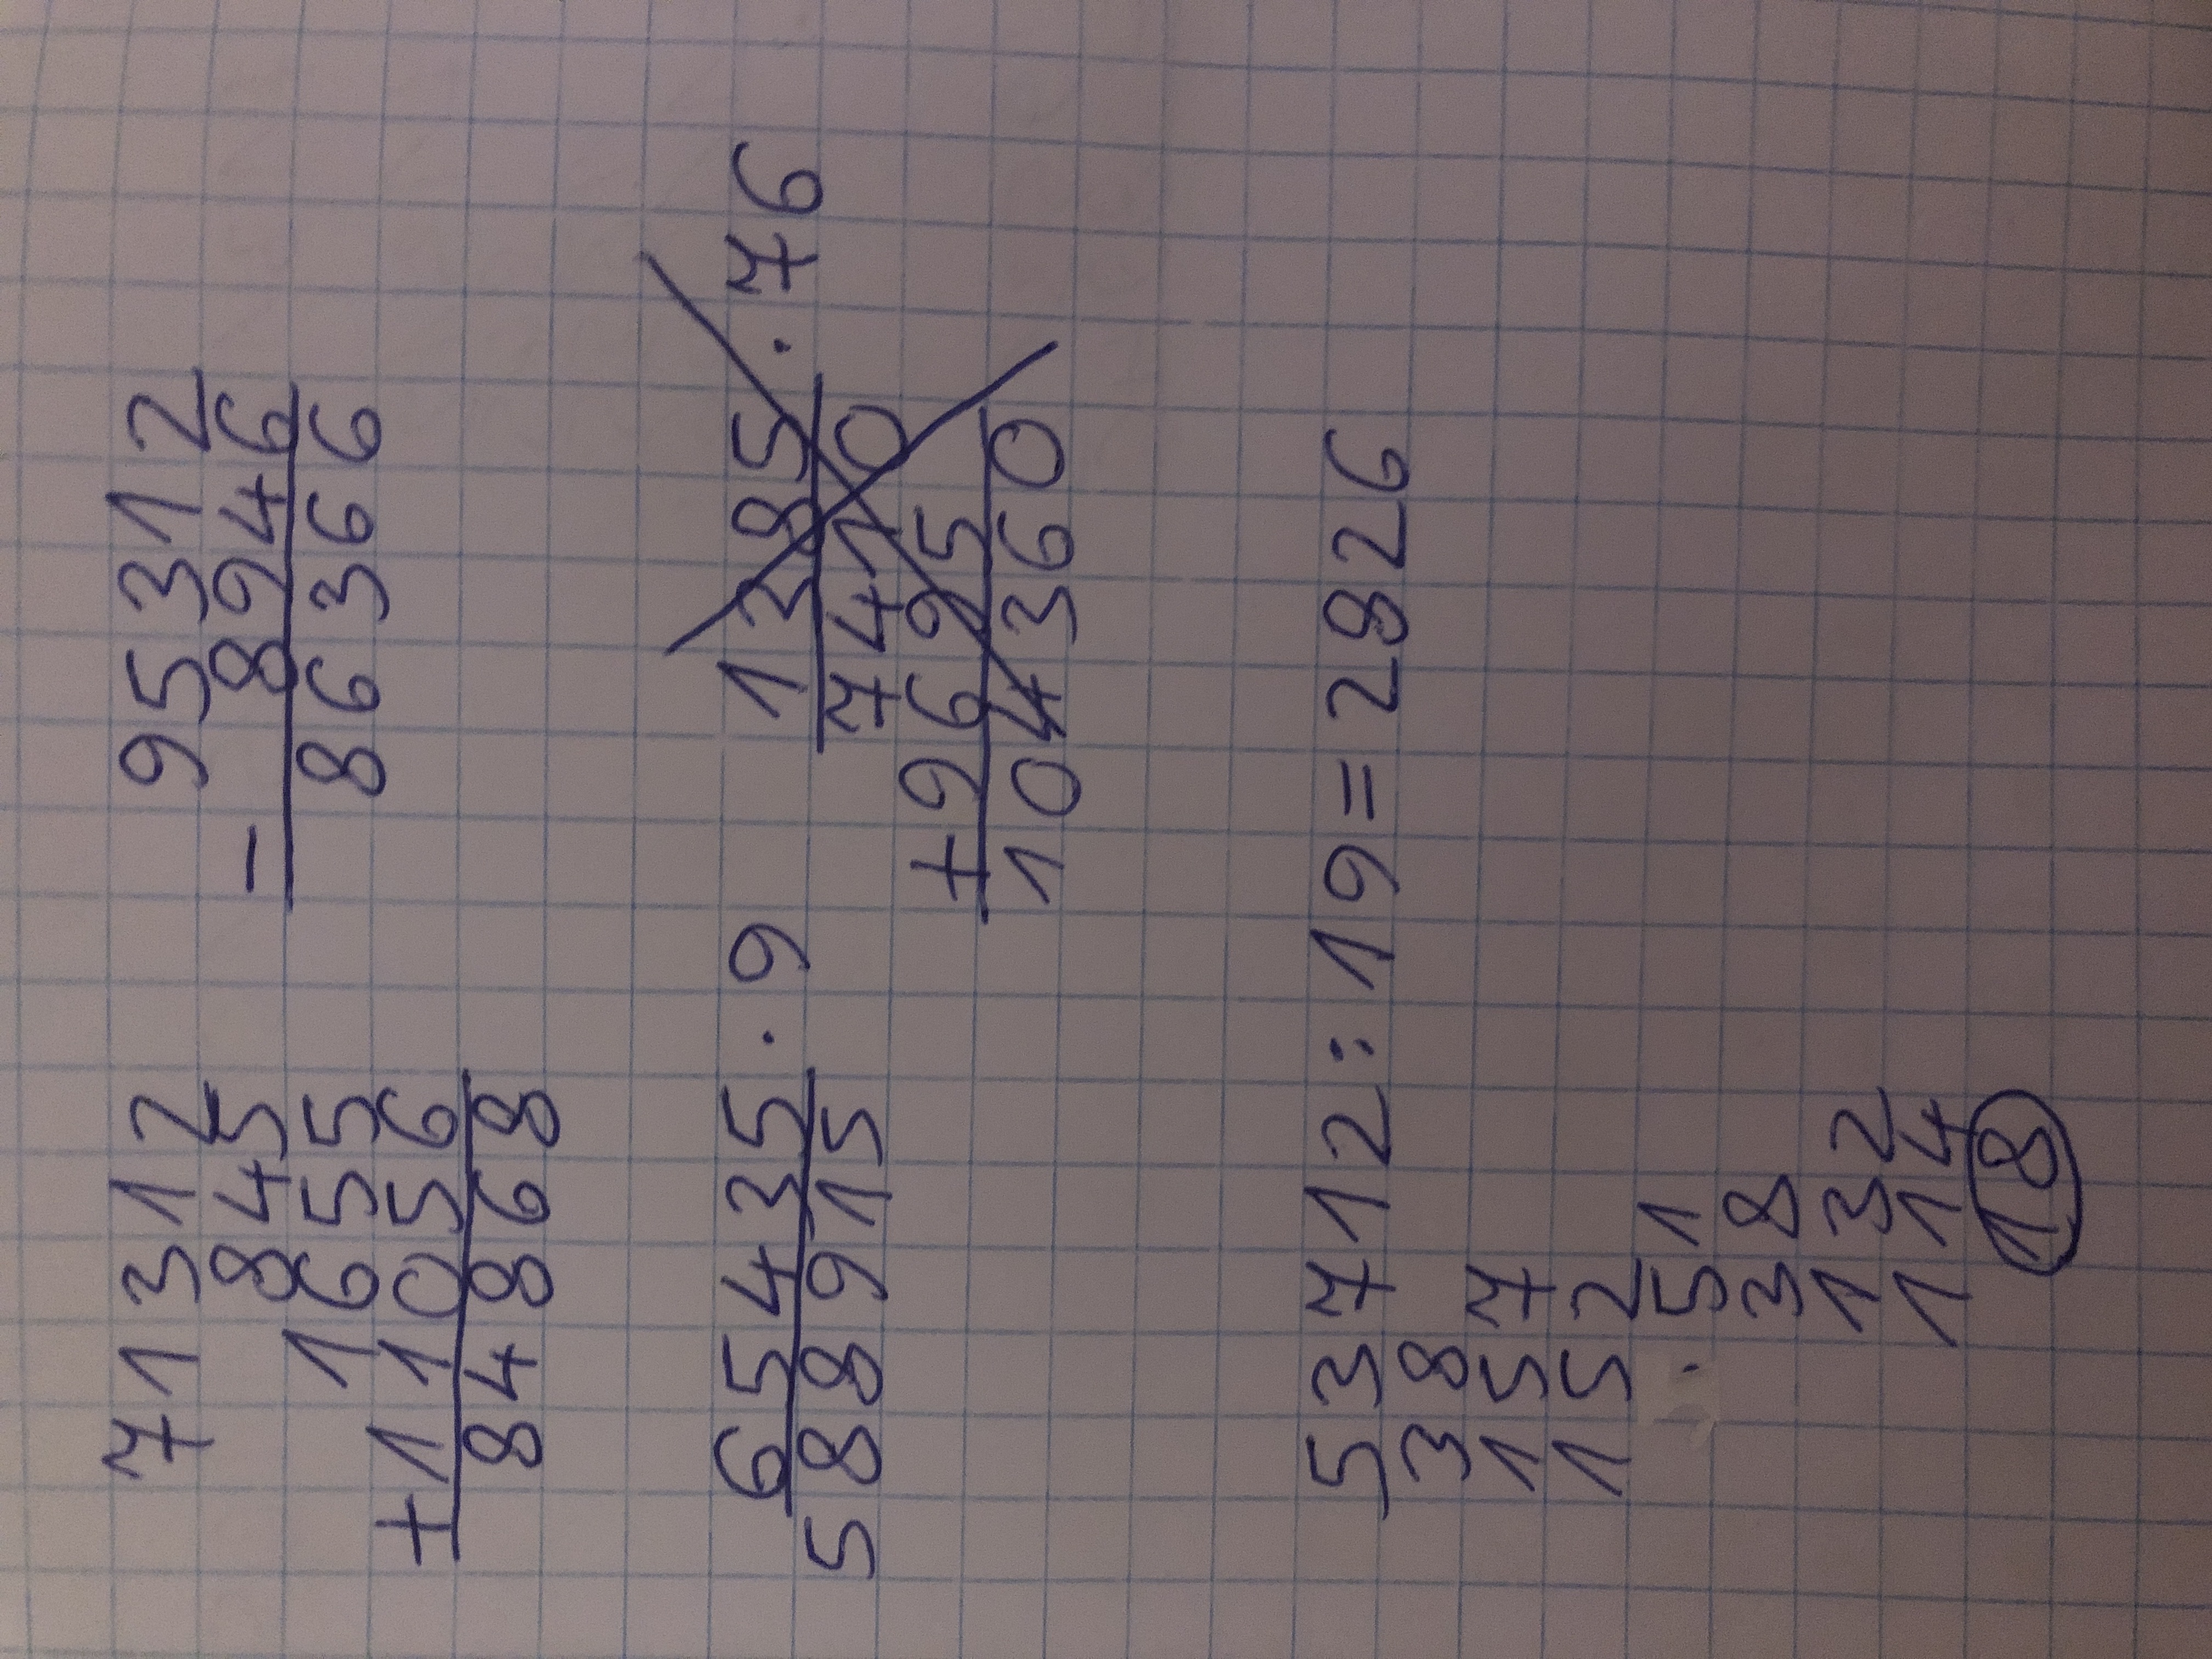 71312
845
1655
+11056
84868
95312
- 8946
86366
65435 · 9
588915
1385 · 76
7410
+9695
104360
53712:19=2826
38
157
152
· 51
38
132
114
18